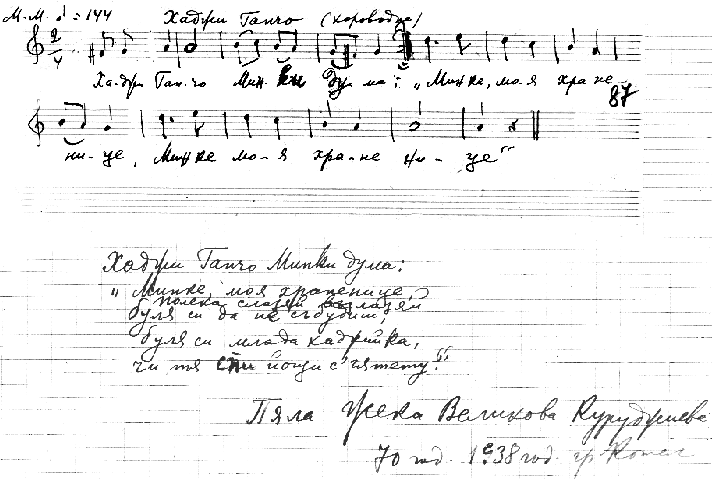 М.М. ♩ = 144 Хаджи Ганчо (хороводна)
2/4
Хаджи Ган-чо Мин-ки ду ма: „Минке, мо-я хране
87
ни-це, Минке мо-я хра-не ни-це“
Хаджи Ганчо Минки дума:
„Минке, моя храненице,
полека слазяй възлазяй
буля си да не събудиш,
буля си млада хаджийка,
чи тя спи йощи с
Пяла Жека Великова Куруджиева
70 год. 1938 год. гр. Котел